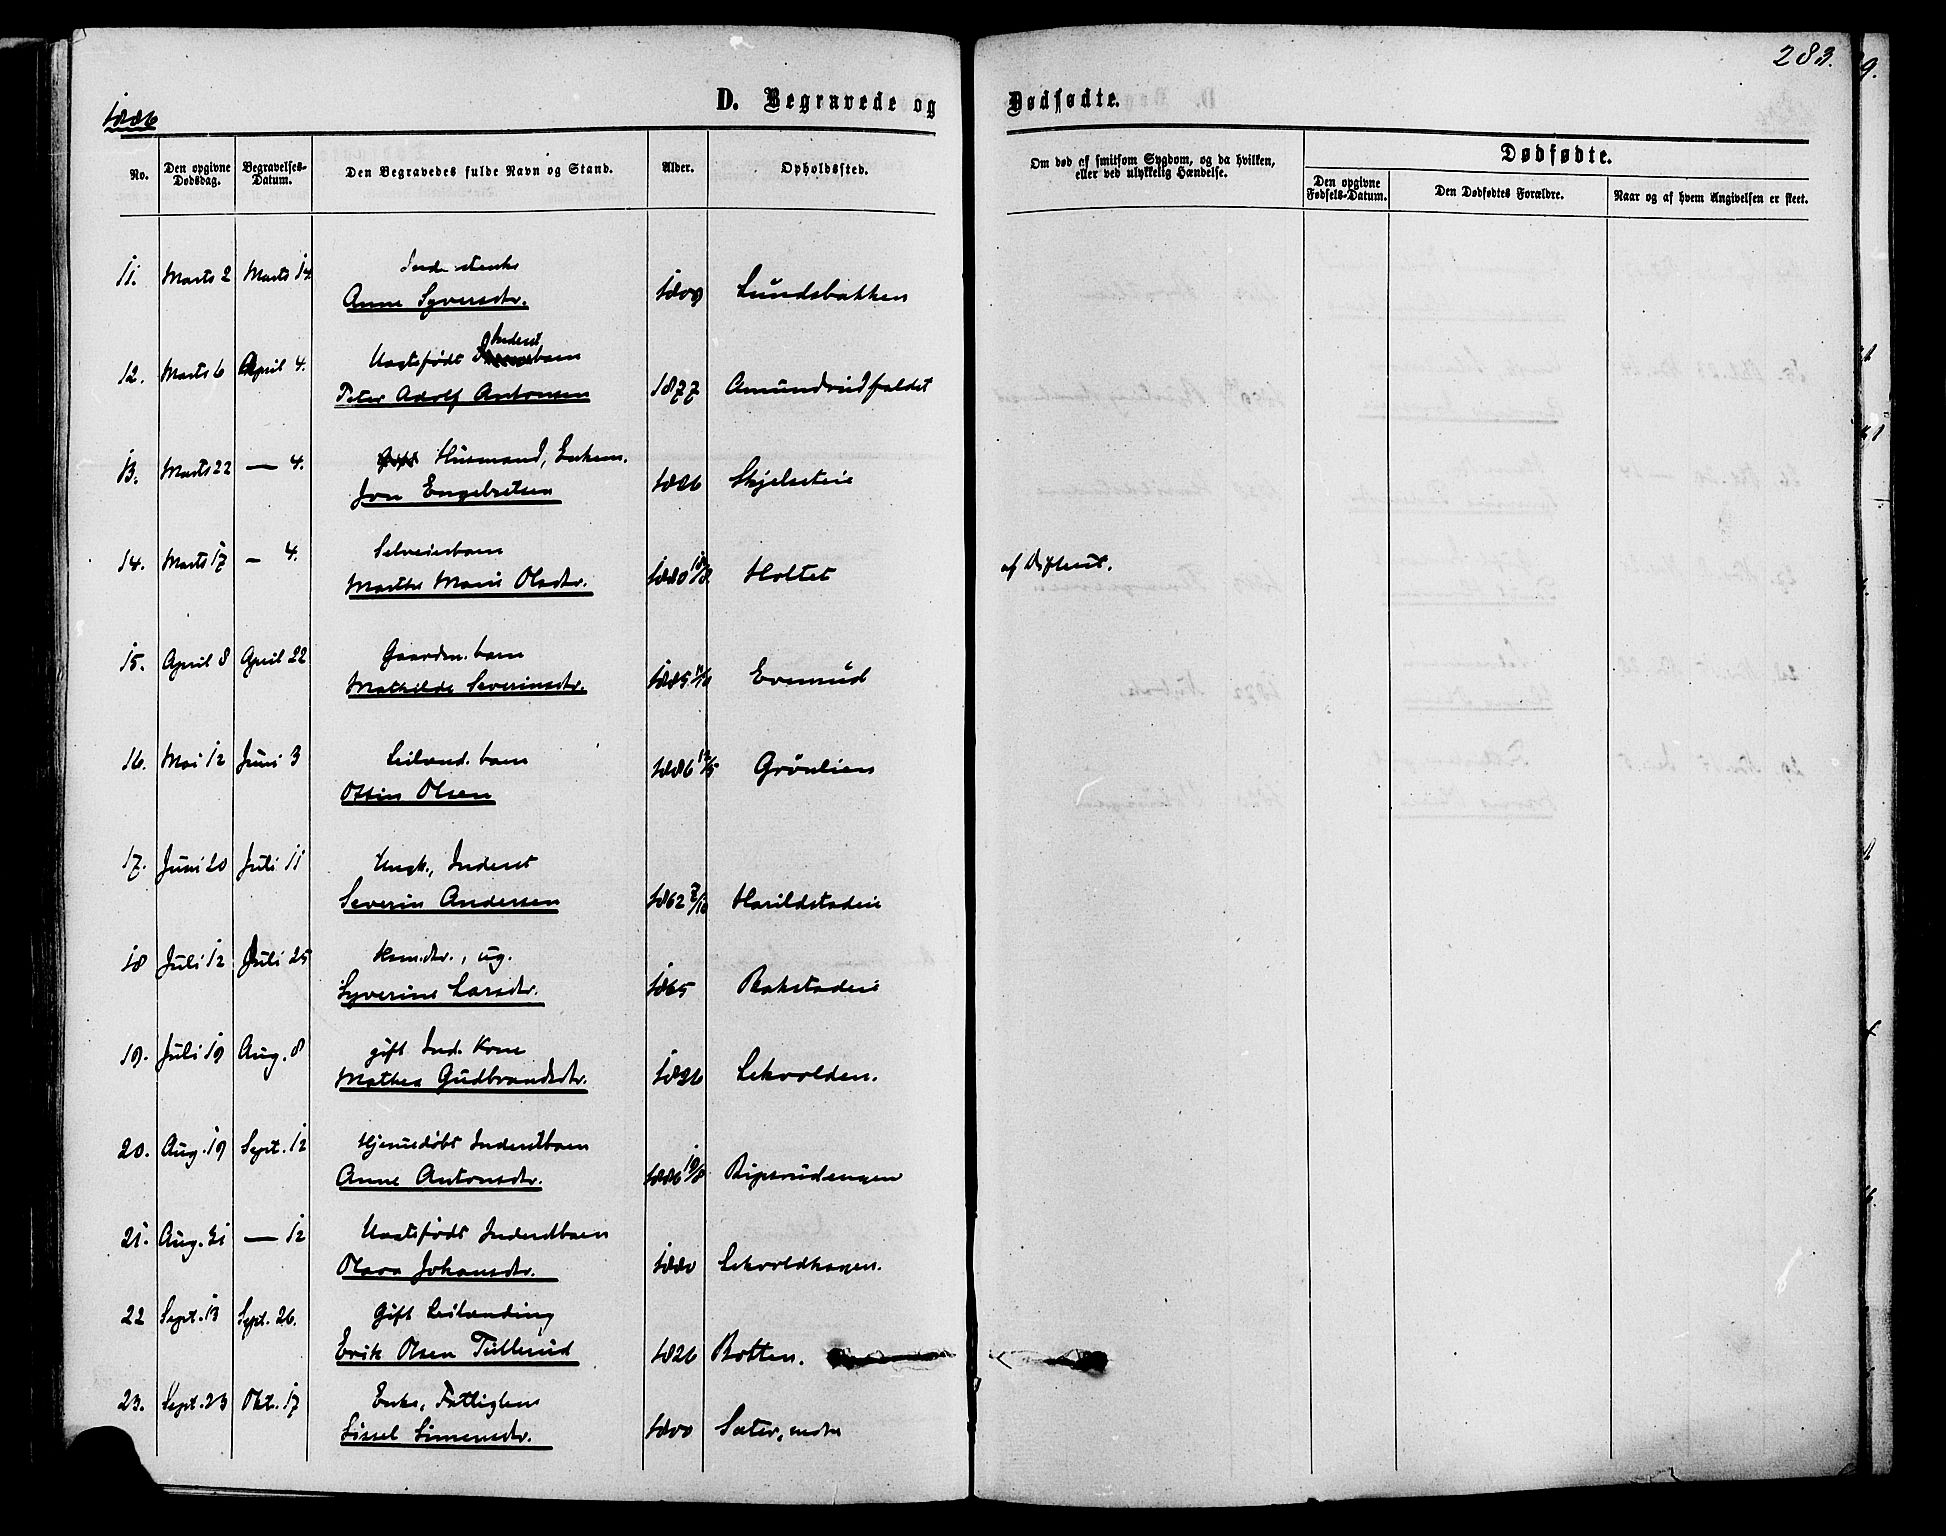 283.
1886
D. Begravede og Dødfødte.
No. | Den opgivne Dødsdag. | Begravelses-Datum. | Den Begravedes fulde Navn og Stand. | Alder. | Opholdssted. | Om død af smitsom Sygdom, og da hvilken, eller ved ulykkelig Hændelse. | Dødfødte.
Den opgivne Fødsels-Datum. | Den Dødfødtes Forældre. | Naar og af hvem Angivelsen er skeet.
11. Marts 2 Marts 14 Inderstenke
Anne Syversdr. 1809 Lundsbakken
12. Marts 6 April 4. Uægtefødt Inderstbarn
Peter Adolf Antonsen 1877 Amundrudfaldet
13. Marts 22 — 4. Husmand, Enkem.
Jon Engebretsen 1826 Skjelseteie
14. Marts 17 — 4. Selveierbarn
Marthe Marie Olsdtr. 1880 18/8 Holtet af Difterit.
15. April 8 April 22 Gaardm. barn
Mathilde Severinsdtr. 1885 Evenrud
16. Mai 12 Juni 3 Leilænd. barn
Ottin Olsen 1886 12/5 Grönlien
17. Juni 20 Juli 11 Ungk., Inderst
Severin Andersen 1862 7/10 Harildstadeie
18 Juli 12 Juli 25 Hsm.dtr., ug.
Syverine Larsdtr. 1865 Bakstadeie
19. Juli 19 Aug. 8 gift Ind. Kone
Mathea Gudbrandsdtr. 1826 Lekvolden.
20. Aug. 19 Sept. 12 Hjemmedöbt Inderstbarn
Anne Antonsdtr. 1886 19/8 Ripsrudengen
21. Aug. 31 — 12 Uægtefødt Inderstbarn
Olava Johansdtr. 1880 Lekvoldhagen.
22 Sept. 13 Sept. 26. Gift Leilænding
Erik Olsen Tullerud 1826 Botten.
23. Sept. 23 Okt. 17 Enke, Fattiglem
Sissel Simensdtr. 1800 Sæter, nedre